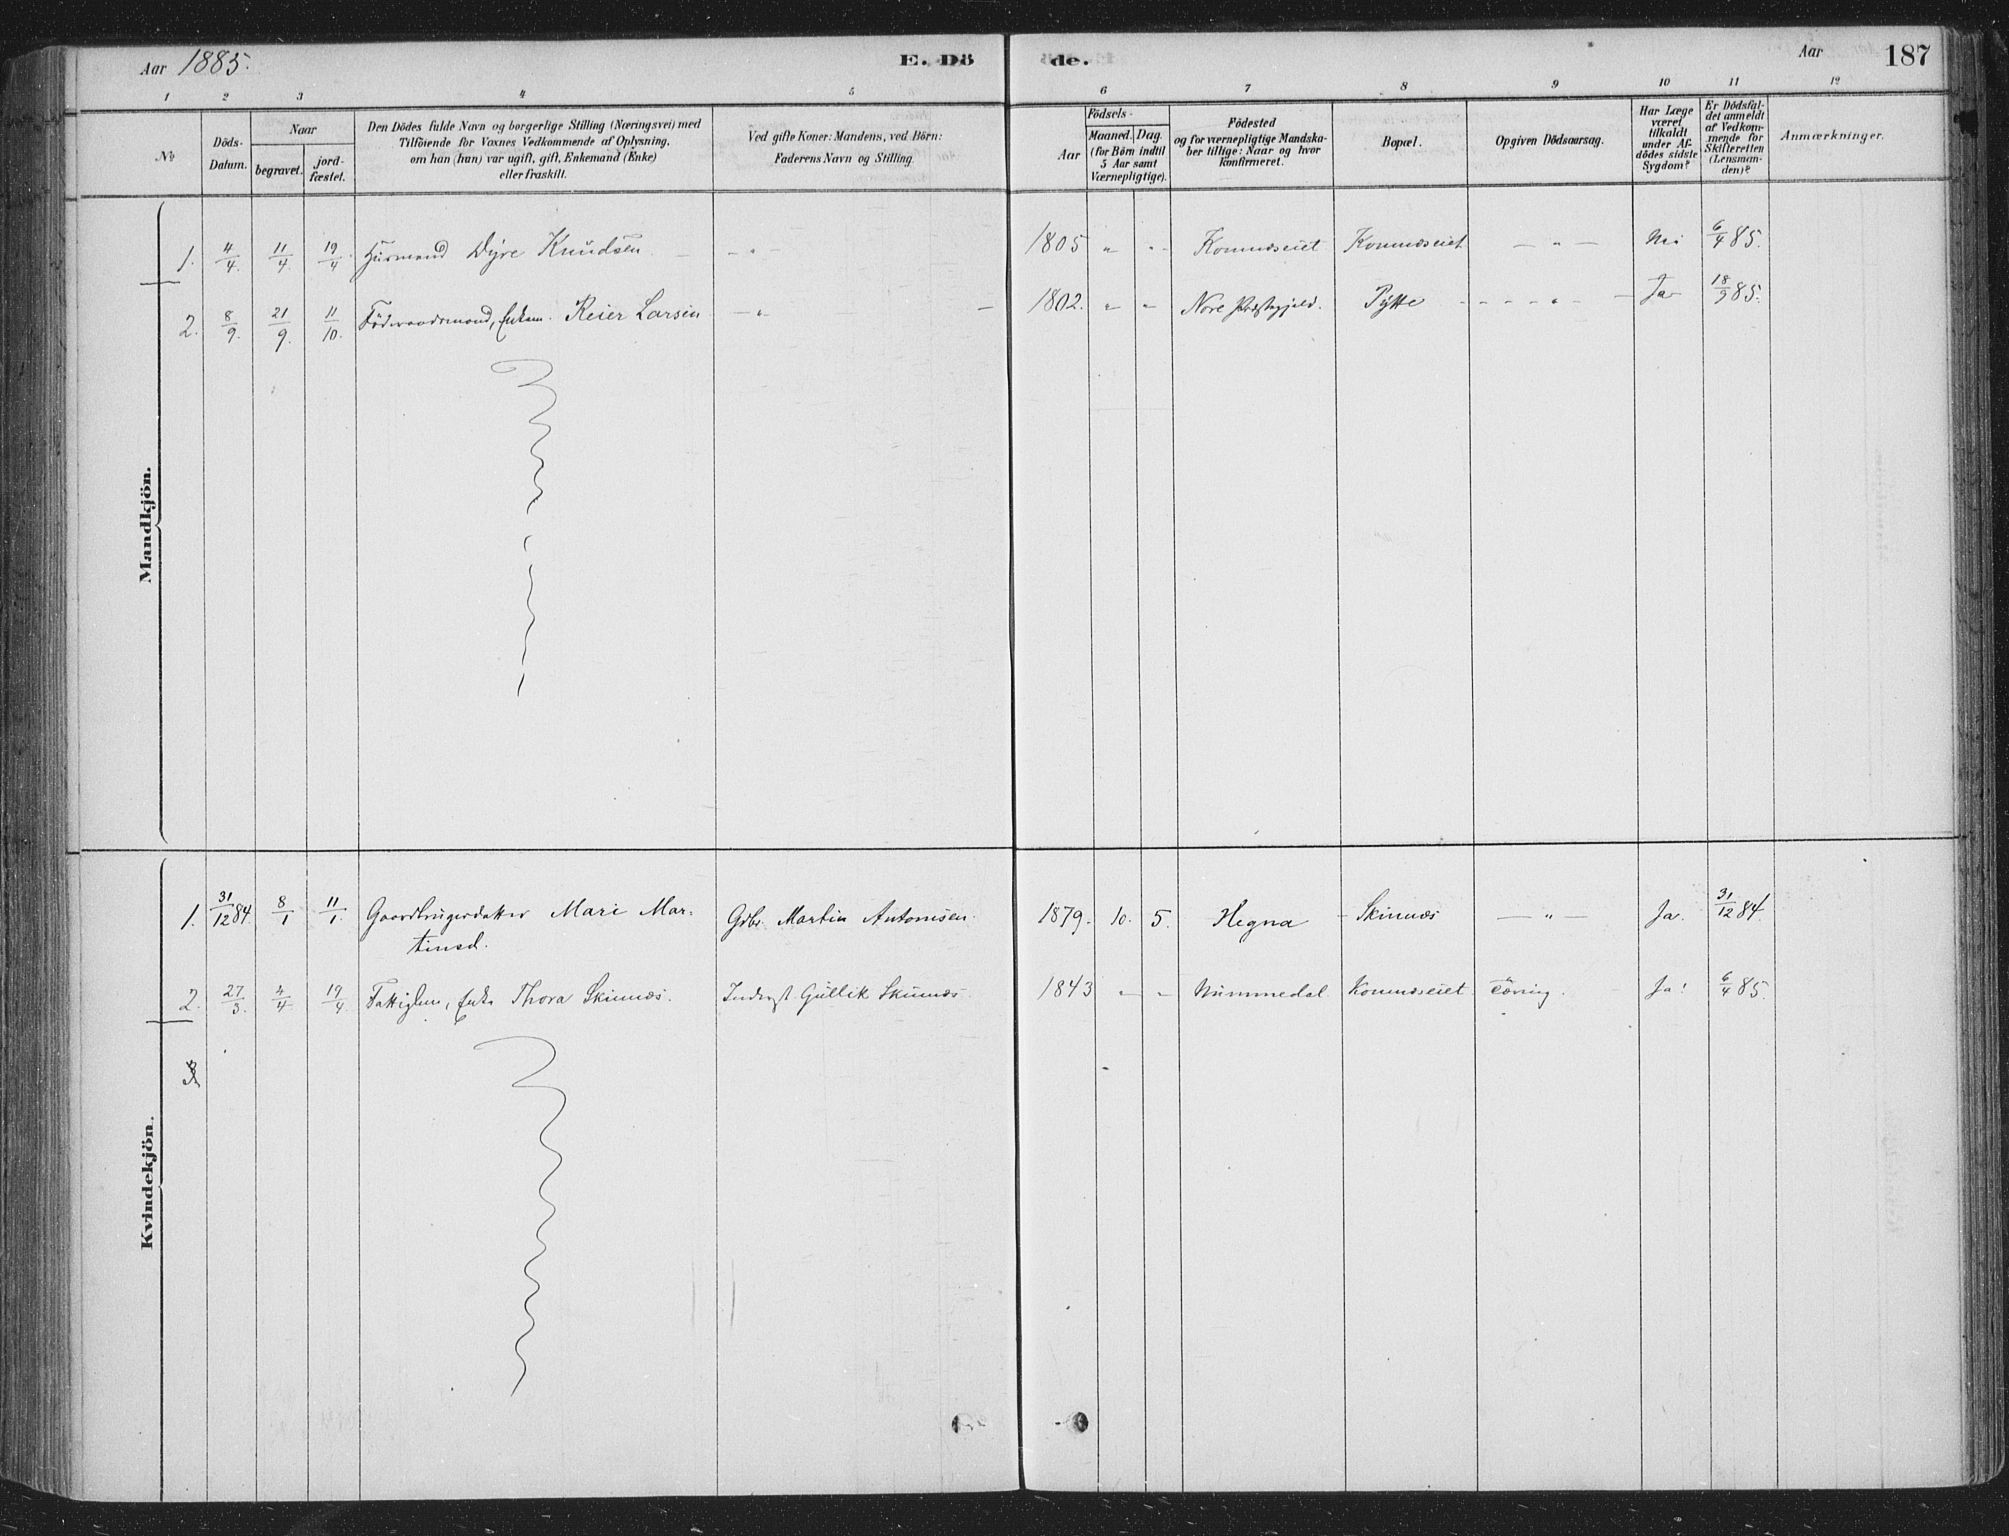 Aar 1885.
E. Dö
de.
Aar
187
1 2 3 4 5 6 7 8 9 10 11 12
No
Döds-
Datum.
Naar
begravet.
jord-
fæstet.
Den Dödes fulde Navn og borgerlige Stilling (Næringsvei) med
Tilföiende for Voxnes Vedkommende af Oplysning,
om han (hun) var ugift, gift, Enkemand (Enke)
eller fraskilt.
Ved gifte Koner: Mandens, ved Börn:
Faderens Navn og Stilling.
Födsels-
Aar
Maaned. Dag.
(for Börn indtil
5 Aar samt
Værnepligtige).
Födested
og for værnepligtige Mandska-
ber tillige: Naar og hvor
konfirmeret.
Bopæl.
Opgiven Dödsaarsag.
Har Læge
været
tilkaldt
under Af-
dödes sidste
Sygdom?
Er Dödsfal-
det anmeldt
af Vedkom-
mende for
Skifteretten
(Lensman-
den)?
Anmærkninger.
Mandkjön.
1. 4/4. 11/4. 19/4. Huusmand Dyre Knudsen - " - 1805 " " Komnæseiet Komnæseiet - " - Nei 6/4 85.
2. 8/9. 21/9. 11/10. Föderaadsmand, Enkem. Reier Larsen - " - 1802. " " Nore Præstegjeld. Pytte - " - Ja 18/9 85.
Kvindekjön.
1. 31/12 84. 8/1 11/1. Gaardbrugerdatter Mari Mar- Gdbr. Martin Antonisen. 1879. 10. 5. Hegna Skimnæs - " - Ja. 31/12 84.
tinsd.
2. 27/3. 4/4 19/4. Fattiglem, Enke Thora Skimnæs. Inderst Gullik Skimnæs 1843 " " Nummedal Komnæseiet Tæring. Ja! 6/4 85.
3